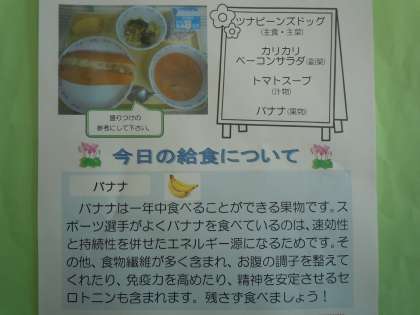 ツナビーンズドッグ
(主食・主菜)
カリカリ
ベーコンサラダ(副菜)
トマトスープ
(汁物)
バナナ(果物)
盛りつけの
参考にして下さい。
今日の給食について
バナナ
バナナは一年中食べることができる果物です。ス
ポーツ選手がよくバナナを食べているのは、速効性
と持続性を併せたエネルギー源になるためです。そ
の他、食物繊維が多く含まれ、お腹の調子を整えて
くれたり、免疫力を高めたり、精神を安定させるセ
ロトニンも含まれます。残さず食べましょう！